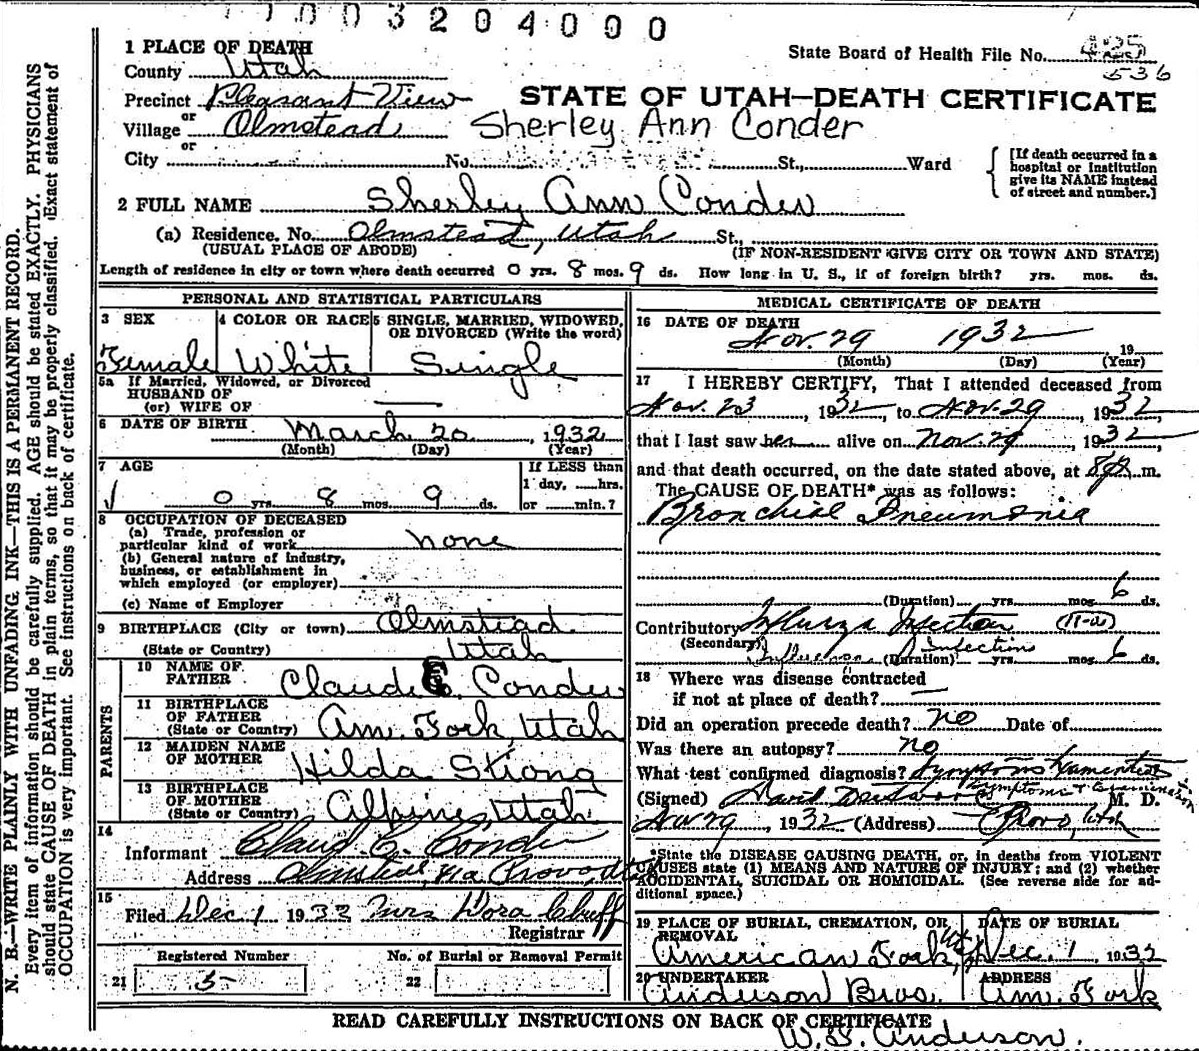 1 0 0 3 2 0 4 0 0 0
State Board of Health File No. 425
536
1 PLACE OF DEATH
County Utah
Precinct Pleasant View
or
Village Olmstead
or
City No. St., Ward
[If death occurred in a hospital or institution give its NAME instead of street and number.]
STATE OF UTAH—DEATH CERTIFICATE
Sherley Ann Conder
2 FULL NAME Sherley Ann Conder
(a) Residence. No. Olmstead, Utah St.,
(USUAL PLACE OF ABODE) (IF NON-RESIDENT GIVE CITY OR TOWN AND STATE)
Length of residence in city or town where death occurred 0 yrs. 8 mos. 9 ds. How long in U. S., if of foreign birth? yrs. mos. ds.
PERSONAL AND STATISTICAL PARTICULARS
3 SEX
Female
4 COLOR OR RACE
White
5 SINGLE, MARRIED, WIDOWED, OR DIVORCED (Write the word)
Single
5a If Married, Widowed, or Divorced
HUSBAND OF
(or) WIFE OF
6 DATE OF BIRTH March 20, 1932
(Month) (Day) (Year)
7 AGE
0 yrs. 8 mos. 9 ds.
If LESS than
1 day, hrs.
or min.?
8 OCCUPATION OF DECEASED
(a) Trade, profession or
particular kind of work none
(b) General nature of industry,
business, or establishment in
which employed (or employer)
(c) Name of Employer
9 BIRTHPLACE (City or town) Olmstead
(State or Country) Utah
PARENTS
10 NAME OF FATHER Claude C. Conder
11 BIRTHPLACE OF FATHER (State or Country) Am. Fork, Utah
12 MAIDEN NAME OF MOTHER Hilda Strong
13 BIRTHPLACE OF MOTHER (State or Country) Alpine, Utah
14
Informant Claud C. Conder
Address Olmstead, via Provo, Utah
15
Filed Dec 1 1932 Mrs Dora Cluff
Registrar
Registered Number
21 5
No. of Burial or Removal Permit
22
MEDICAL CERTIFICATE OF DEATH
16 DATE OF DEATH
Nov. 29 1932 19
(Month) (Day) (Year)
17 I HEREBY CERTIFY, That I attended deceased from
Nov. 23, 1932, to Nov. 29, 1932,
that I last saw her alive on Nov. 29, 1932
and that death occurred, on the date stated above, at 8 p. m.
The CAUSE OF DEATH* was as follows:
Bronchial Pneumonia
(Duration) yrs. mos. 6 ds.
Contributory Influenza Infection (11-a)
(Secondary) Influenza Infection
(Duration) yrs. mos. 6 ds.
18 Where was disease contracted
if not at place of death?
Did an operation precede death? no Date of
Was there an autopsy? no
What test confirmed diagnosis? Symptoms & Examination
Symptoms & Examination
(Signed) David M. D.
Nov 29, 1932 (Address) Provo, Utah
*State the DISEASE CAUSING DEATH, or, in deaths from VIOLENT
CAUSES state (1) MEANS AND NATURE OF INJURY; and (2) whether
ACCIDENTAL, SUICIDAL OR HOMICIDAL. (See reverse side for ad-
ditional space.)
19 PLACE OF BURIAL, CREMATION, OR REMOVAL
American Fork, Utah
DATE OF BURIAL
Dec. 1 1932
20 UNDERTAKER
Anderson Bros.
ADDRESS
Am. Fork
READ CAREFULLY INSTRUCTIONS ON BACK OF CERTIFICATE
W. S. Anderson.
N. B.—WRITE PLAINLY WITH UNFADING INK—THIS IS A PERMANENT RECORD.
Every item of information should be carefully supplied. AGE should be stated EXACTLY. PHYSICIANS
should state CAUSE OF DEATH in plain terms, so that it may be properly classified. Exact statement of
OCCUPATION is very important. See instructions on back of certificate.